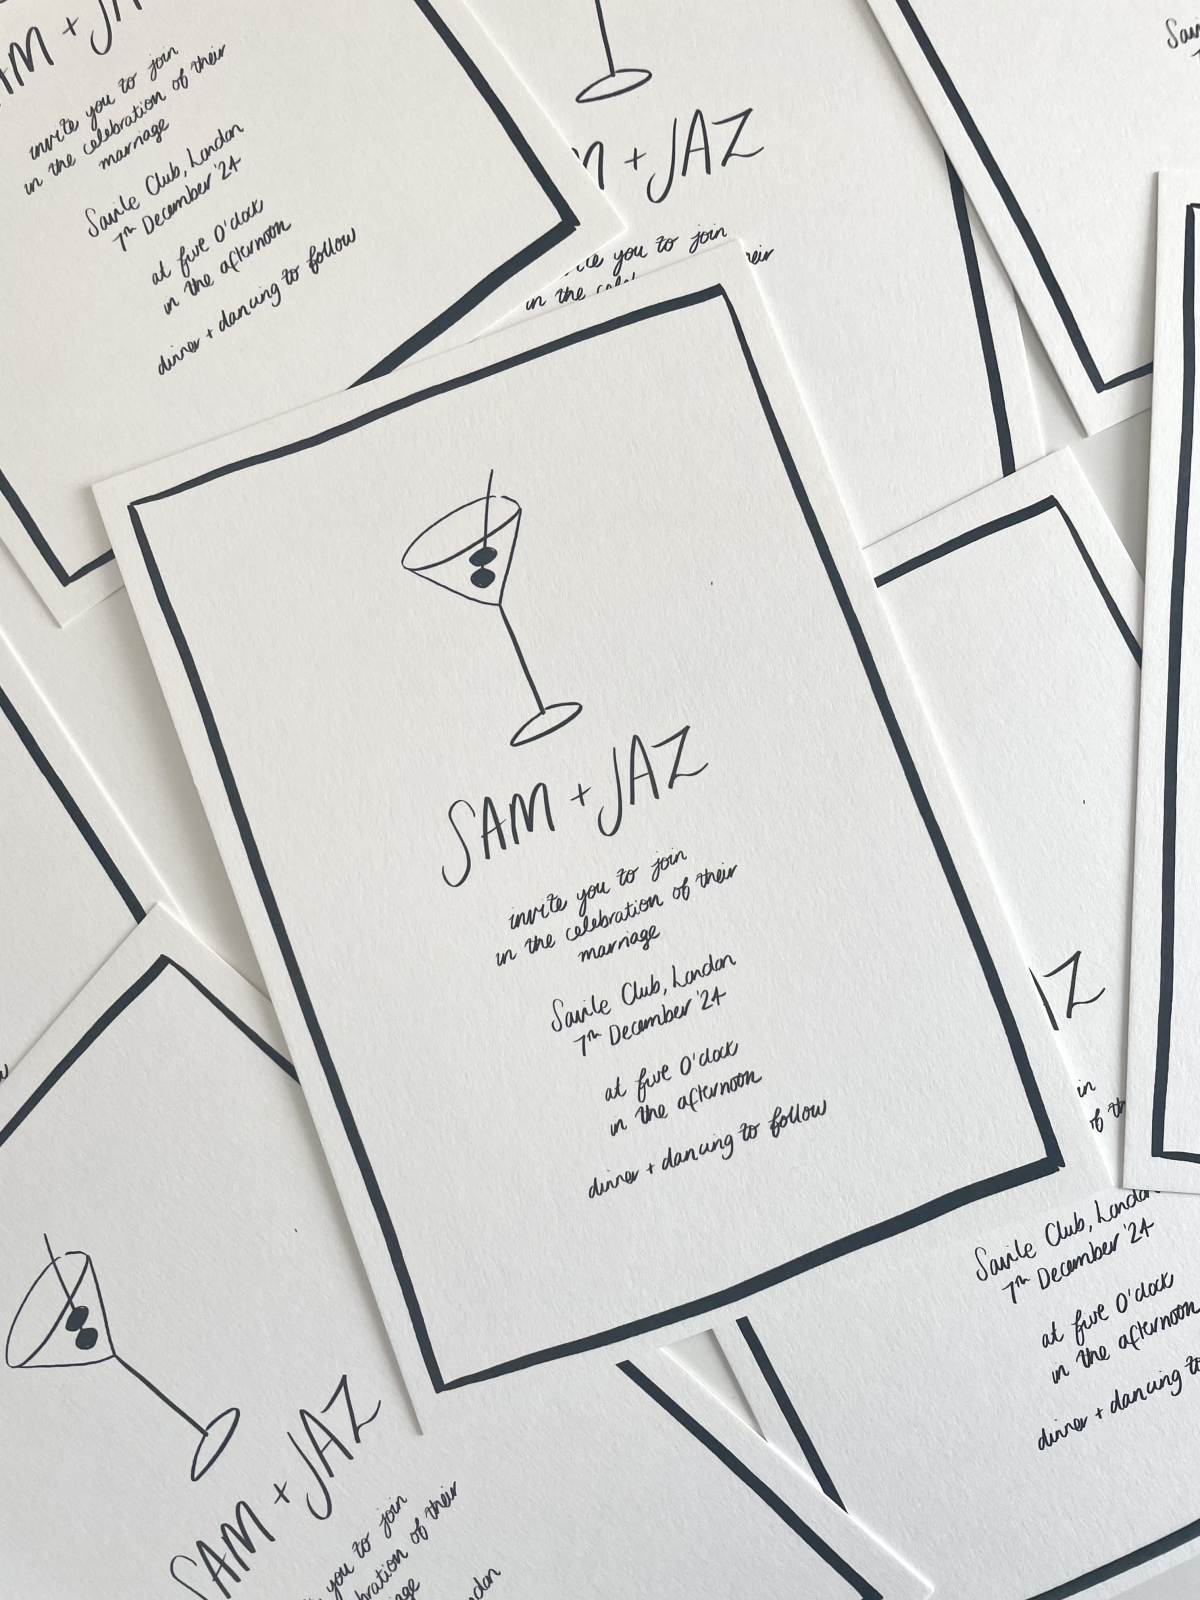 AM + JA
invite you to join
in the celebration of their
marriage
Savile Club, London
7th December '24
at five O'clock
in the afternoon
dinner + dancing to follow
M + JAZ
you to join
their
in the
SAM + JAZ
invite you to join
in the celebration of their
marriage
Savile Club, London
7th December '24
at five O'clock
in the afternoon
dinner + dancing to follow
AZ
in
of th
Savile Club, London
7th December '24
at five O'clock
in the afternoon
dinner + dancing to
SAM + JAZ
you to join
bration of their
iage
ndon